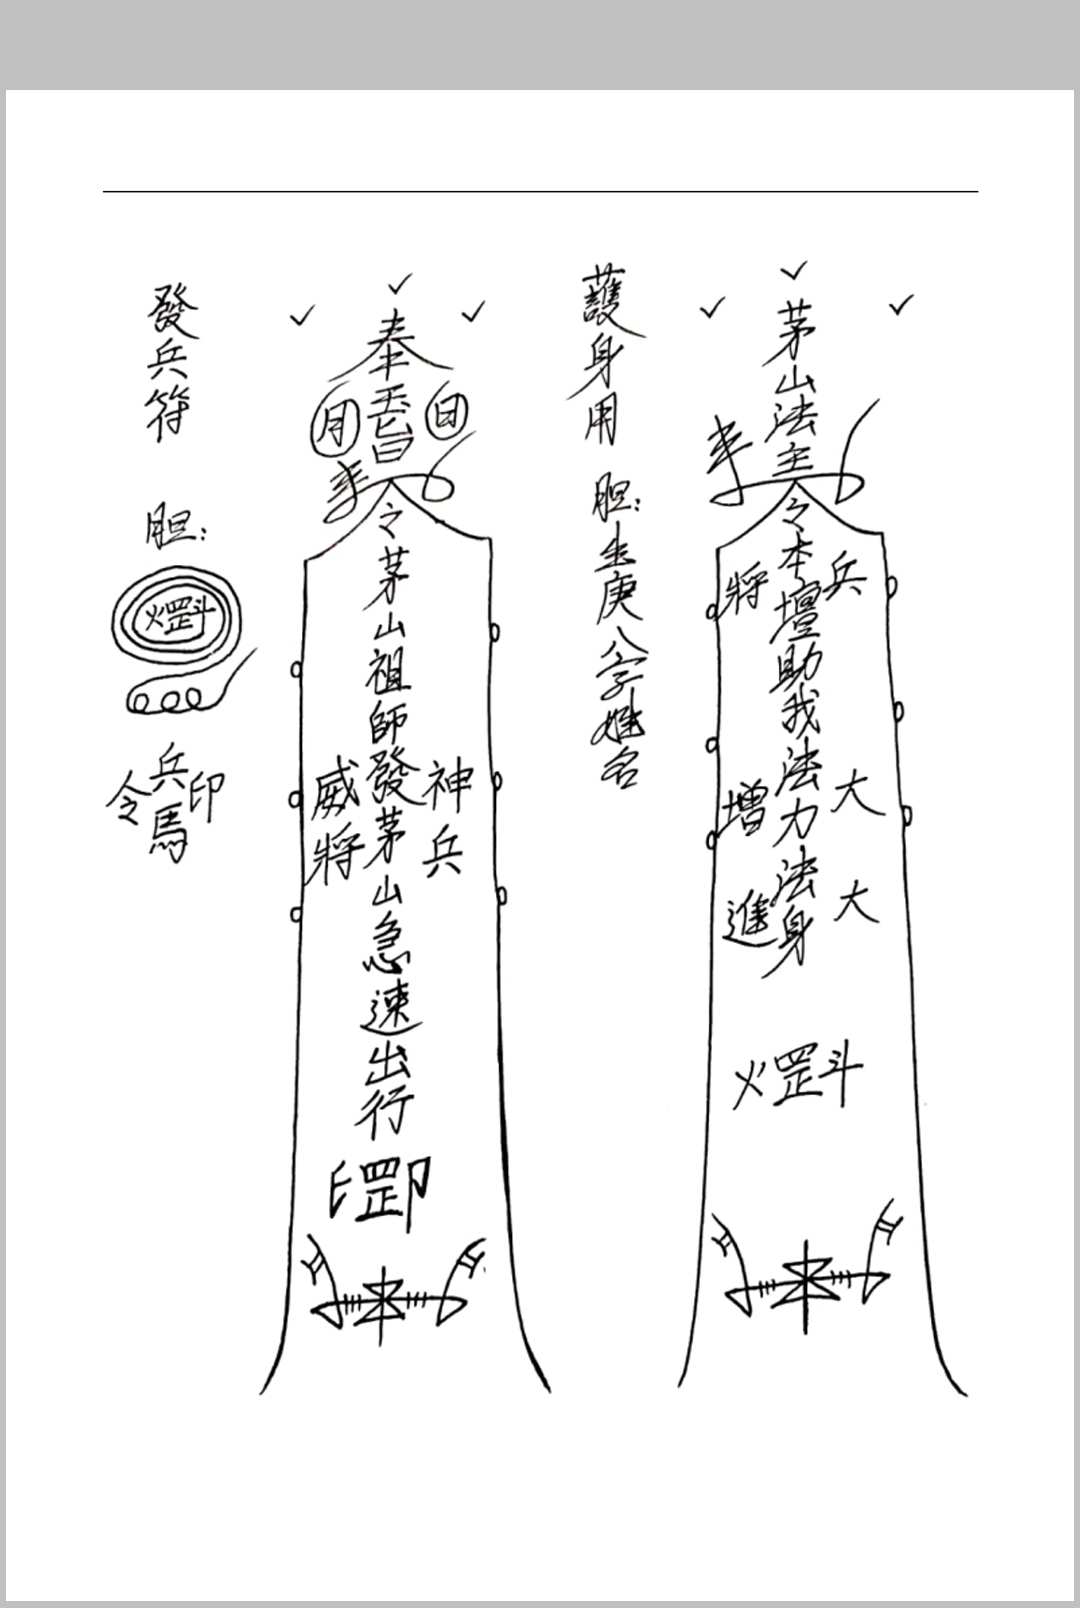 茅山法主
令本壇助我法力法身
將
兵
增
大
進
大
火罡斗
護身用
胆:生庚八字姓名
奉玉旨
日
月
令茅山祖師發茅山急速出行
神兵
威將
印罡印
發兵符
胆:
火罡斗
兵馬
令
印